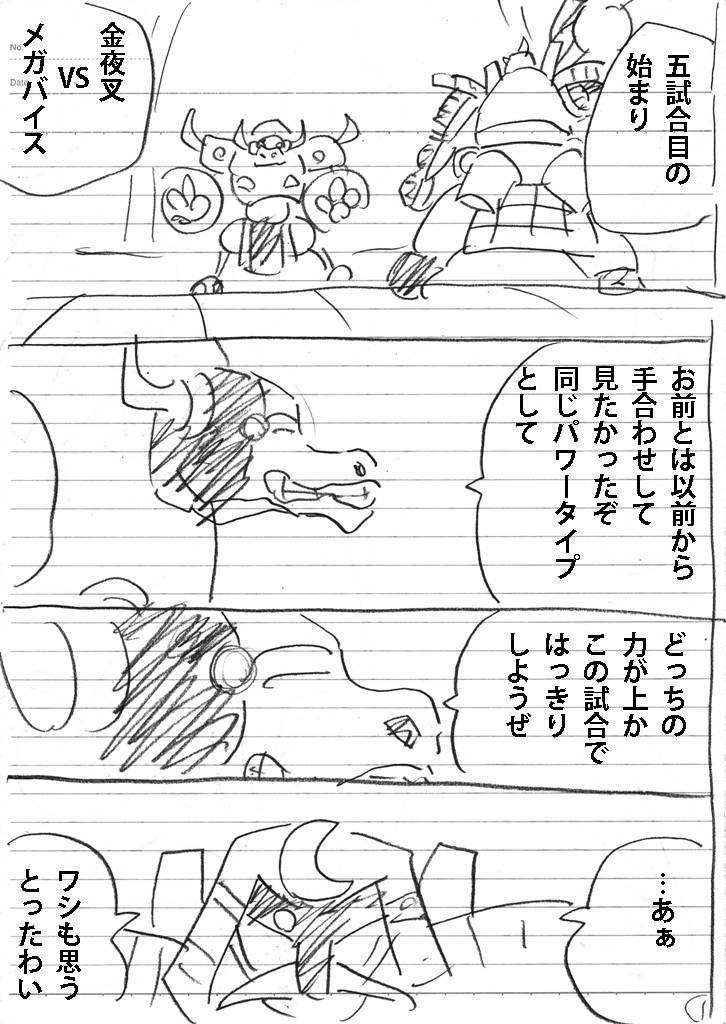 五試合目の
始まり
金夜叉
VS
メガバイス
No.
Date
お前とは以前から
手合わせして
見たかったぞ
同じパワータイプ
として
どっちの
力が上か
この試合で
はっきり
しようぜ
…あぁ
ワシも思う
とったわい
1